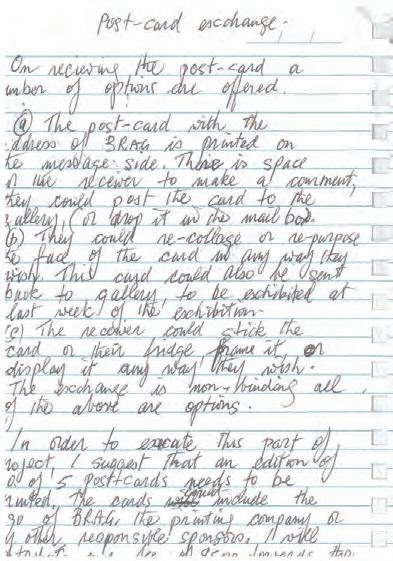 Post-card exchange.
On recieving the post-card a
umber of options are offered.
(a) The post-card with the
ddress of BRAG is printed on
he message side. There is space
or the receiver to make a comment,
hey could post the card to the
gallery, (or drop it in the mail box.
(b) They could re-collage or re-purpose
he face of the card in any way they
wish. This card could also be sent
back to gallery, to be exhibited at
last week of the exhibition.
(c) The receiver could stick the
card on their fridge frame it, or
display it any way they wish.
The exchange is non-binding all
of the above are options.
In order to execute this part of
roject, I suggest that an edition of
of 5 post-cards needs to be
rinted. The cards could include the
go of BRAG, the printing company or
y other responsible sponsors. I will